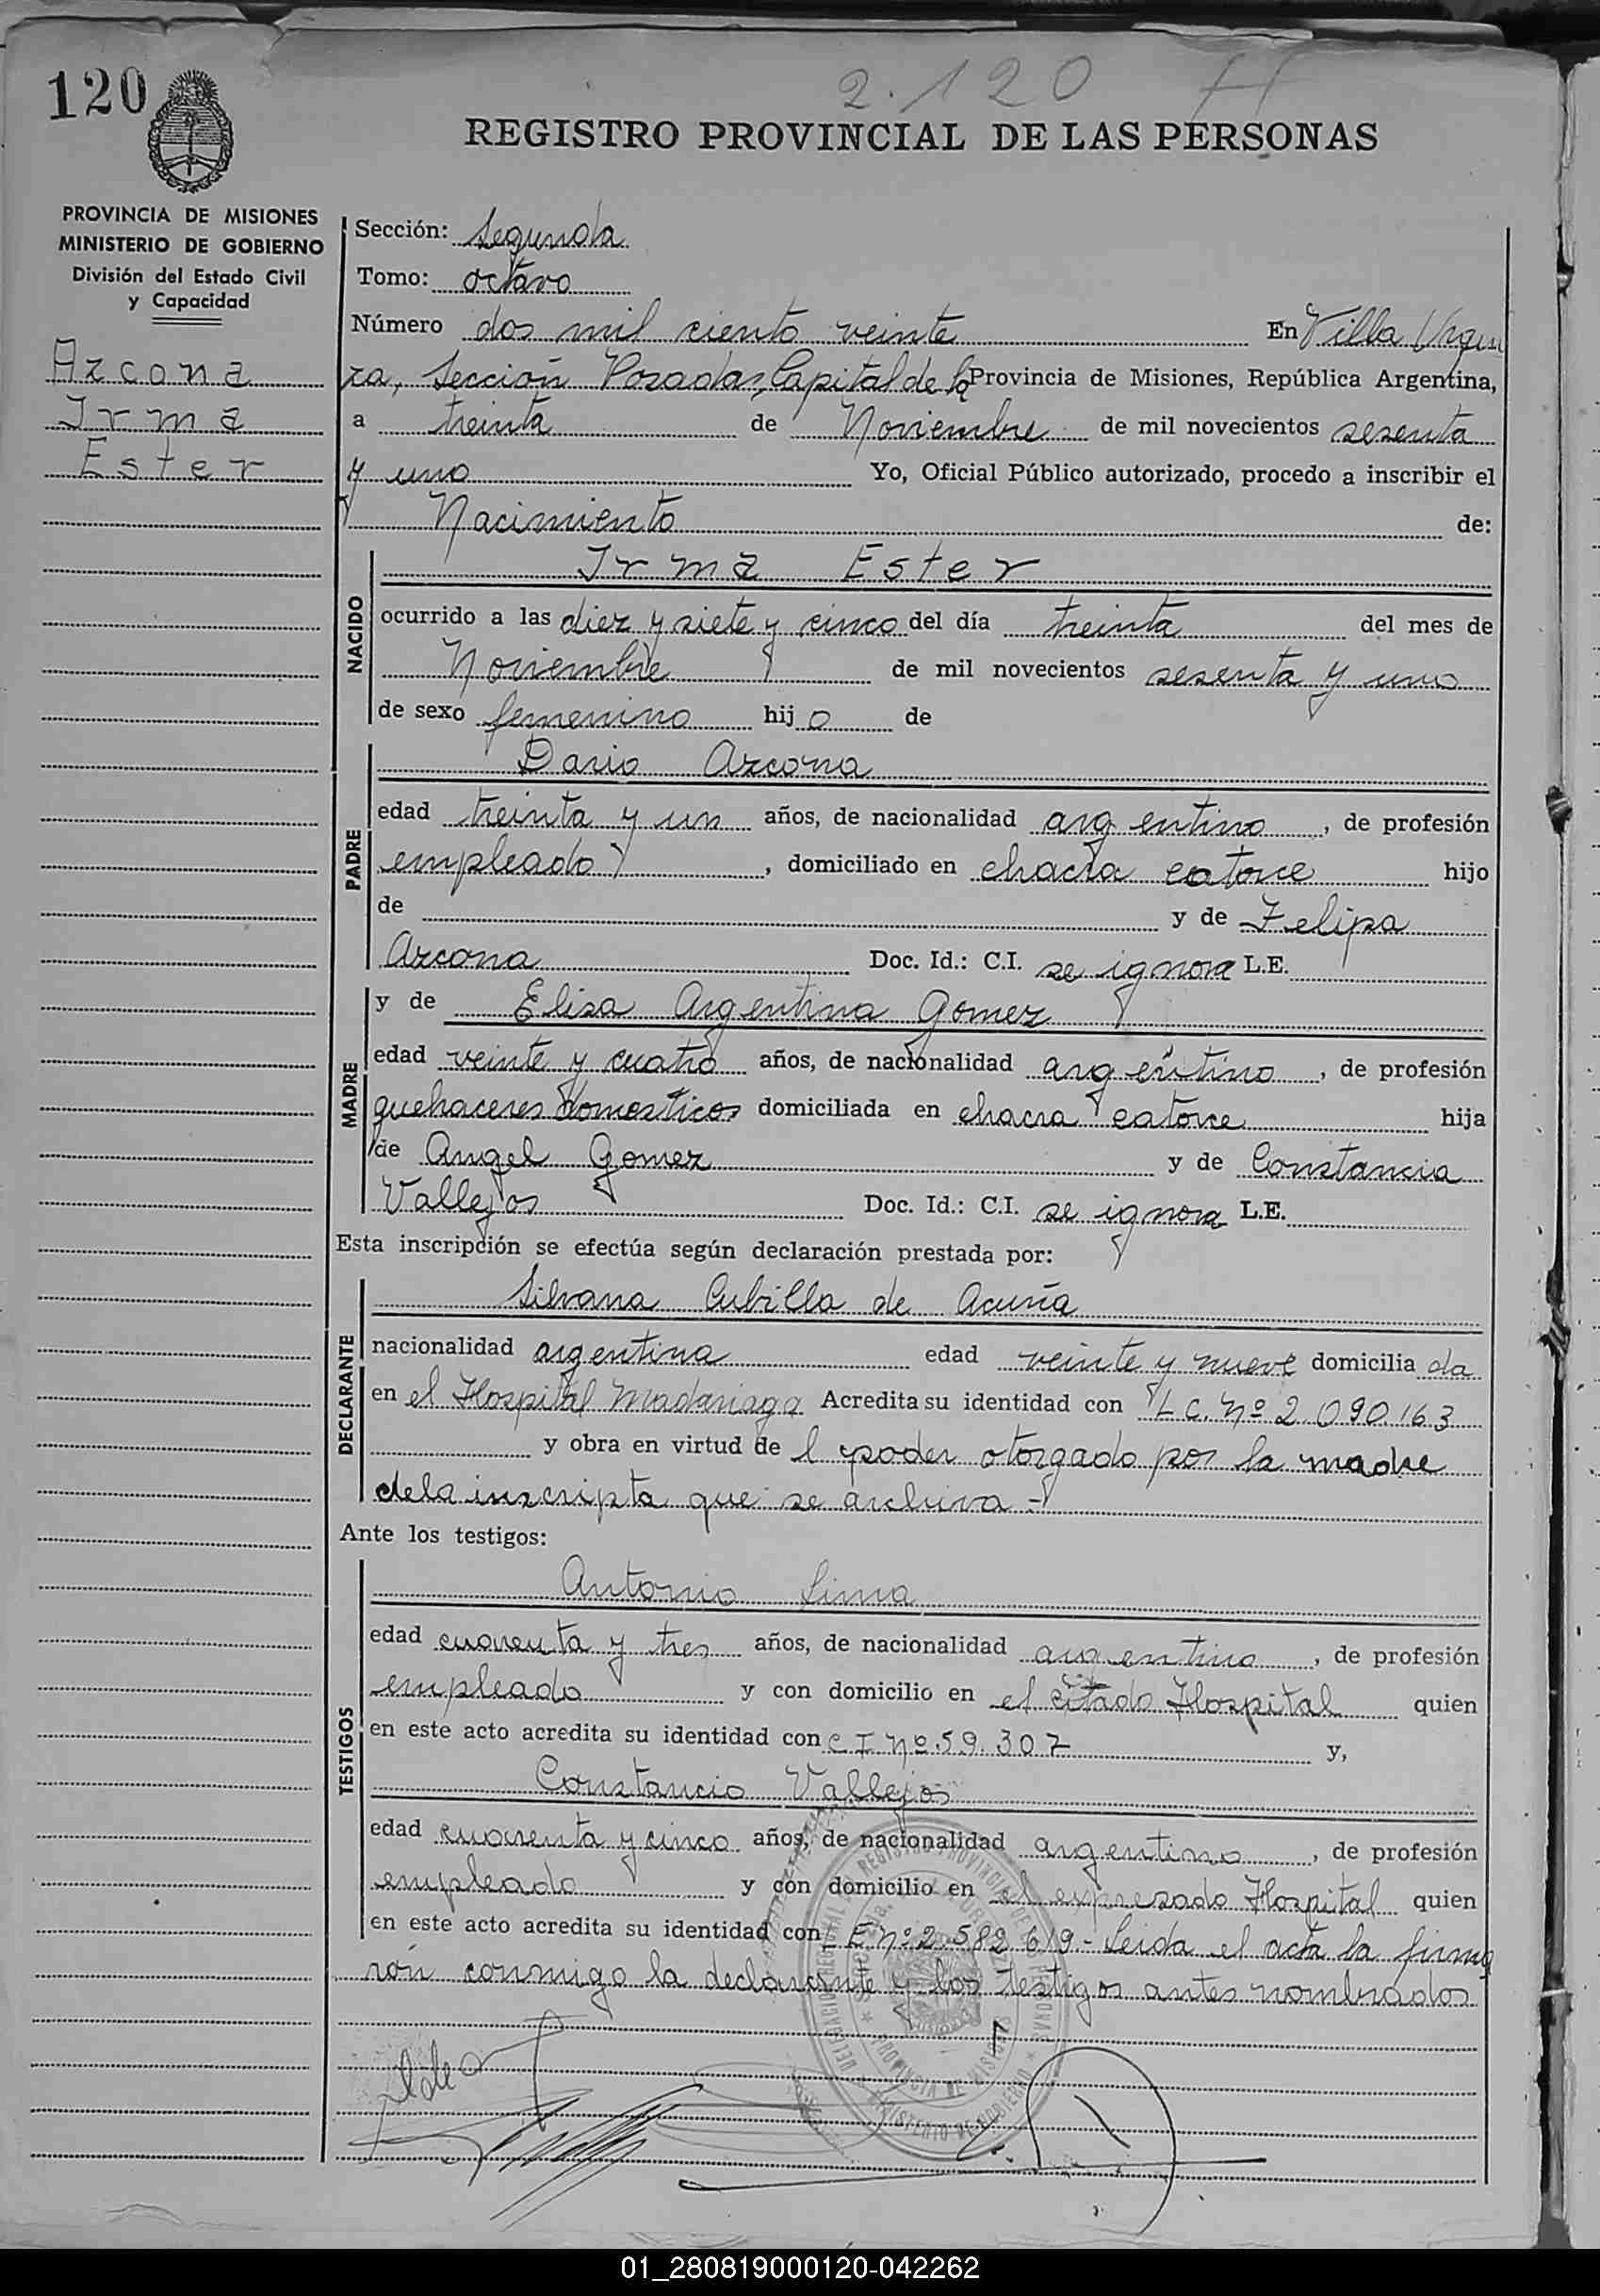 120
2.120 H
REGISTRO PROVINCIAL DE LAS PERSONAS
PROVINCIA DE MISIONES
MINISTERIO DE GOBIERNO
División del Estado Civil
y Capacidad
Azcona
Irma
Ester
Sección: Segunda
Tomo: octavo
Número dos mil ciento veinte En Villa Urqui
za, Sección Posadas, Capital de la Provincia de Misiones, República Argentina,
a treinta de Noviembre de mil novecientos sesenta
y uno Yo, Oficial Público autorizado, procedo a inscribir el
Nacimiento de:
NACIDO
Irma Ester
ocurrido a las diez y siete y cinco del día treinta del mes de
Noviembre de mil novecientos sesenta y uno
de sexo femenino hijo de
PADRE
Dario Azcona
edad treinta y un años, de nacionalidad argentino, de profesión
empleado, domiciliado en chacra catorce hijo
de y de Felipa
Azcona Doc. Id.: C.I. se ignora L.E.
MADRE
y de Elisa Argentina Gomez
edad veinte y cuatro años, de nacionalidad argentino, de profesión
quehaceres domesticos domiciliada en chacra catorce hija
de Angel Gomez y de Constancia
Vallejos Doc. Id.: C.I. se ignora L.E.
Esta inscripción se efectúa según declaración prestada por:
DECLARANTE
Silvana Cubilla de Acuña
nacionalidad argentina edad veinte y nueve domiciliada
en el Hospital Madariaga Acredita su identidad con L C. Nº 2 090163
y obra en virtud del poder otorgado por la madre
de la inscripta que se archiva -
Ante los testigos:
TESTIGOS
Antonio Lima
edad cuarenta y tres años, de nacionalidad argentino, de profesión
empleado y con domicilio en el citado Hospital quien
en este acto acredita su identidad con C I Nº 59.307 y,
Constancio Vallejos
edad cuarenta y cinco años, de nacionalidad argentino, de profesión
empleado y con domicilio en el expresado Hospital quien
en este acto acredita su identidad con L E Nº 2.582 619.- Leida el acta la firma
rón conmigo la declarante y los testigos antes nombrados
01_280819000120-042262